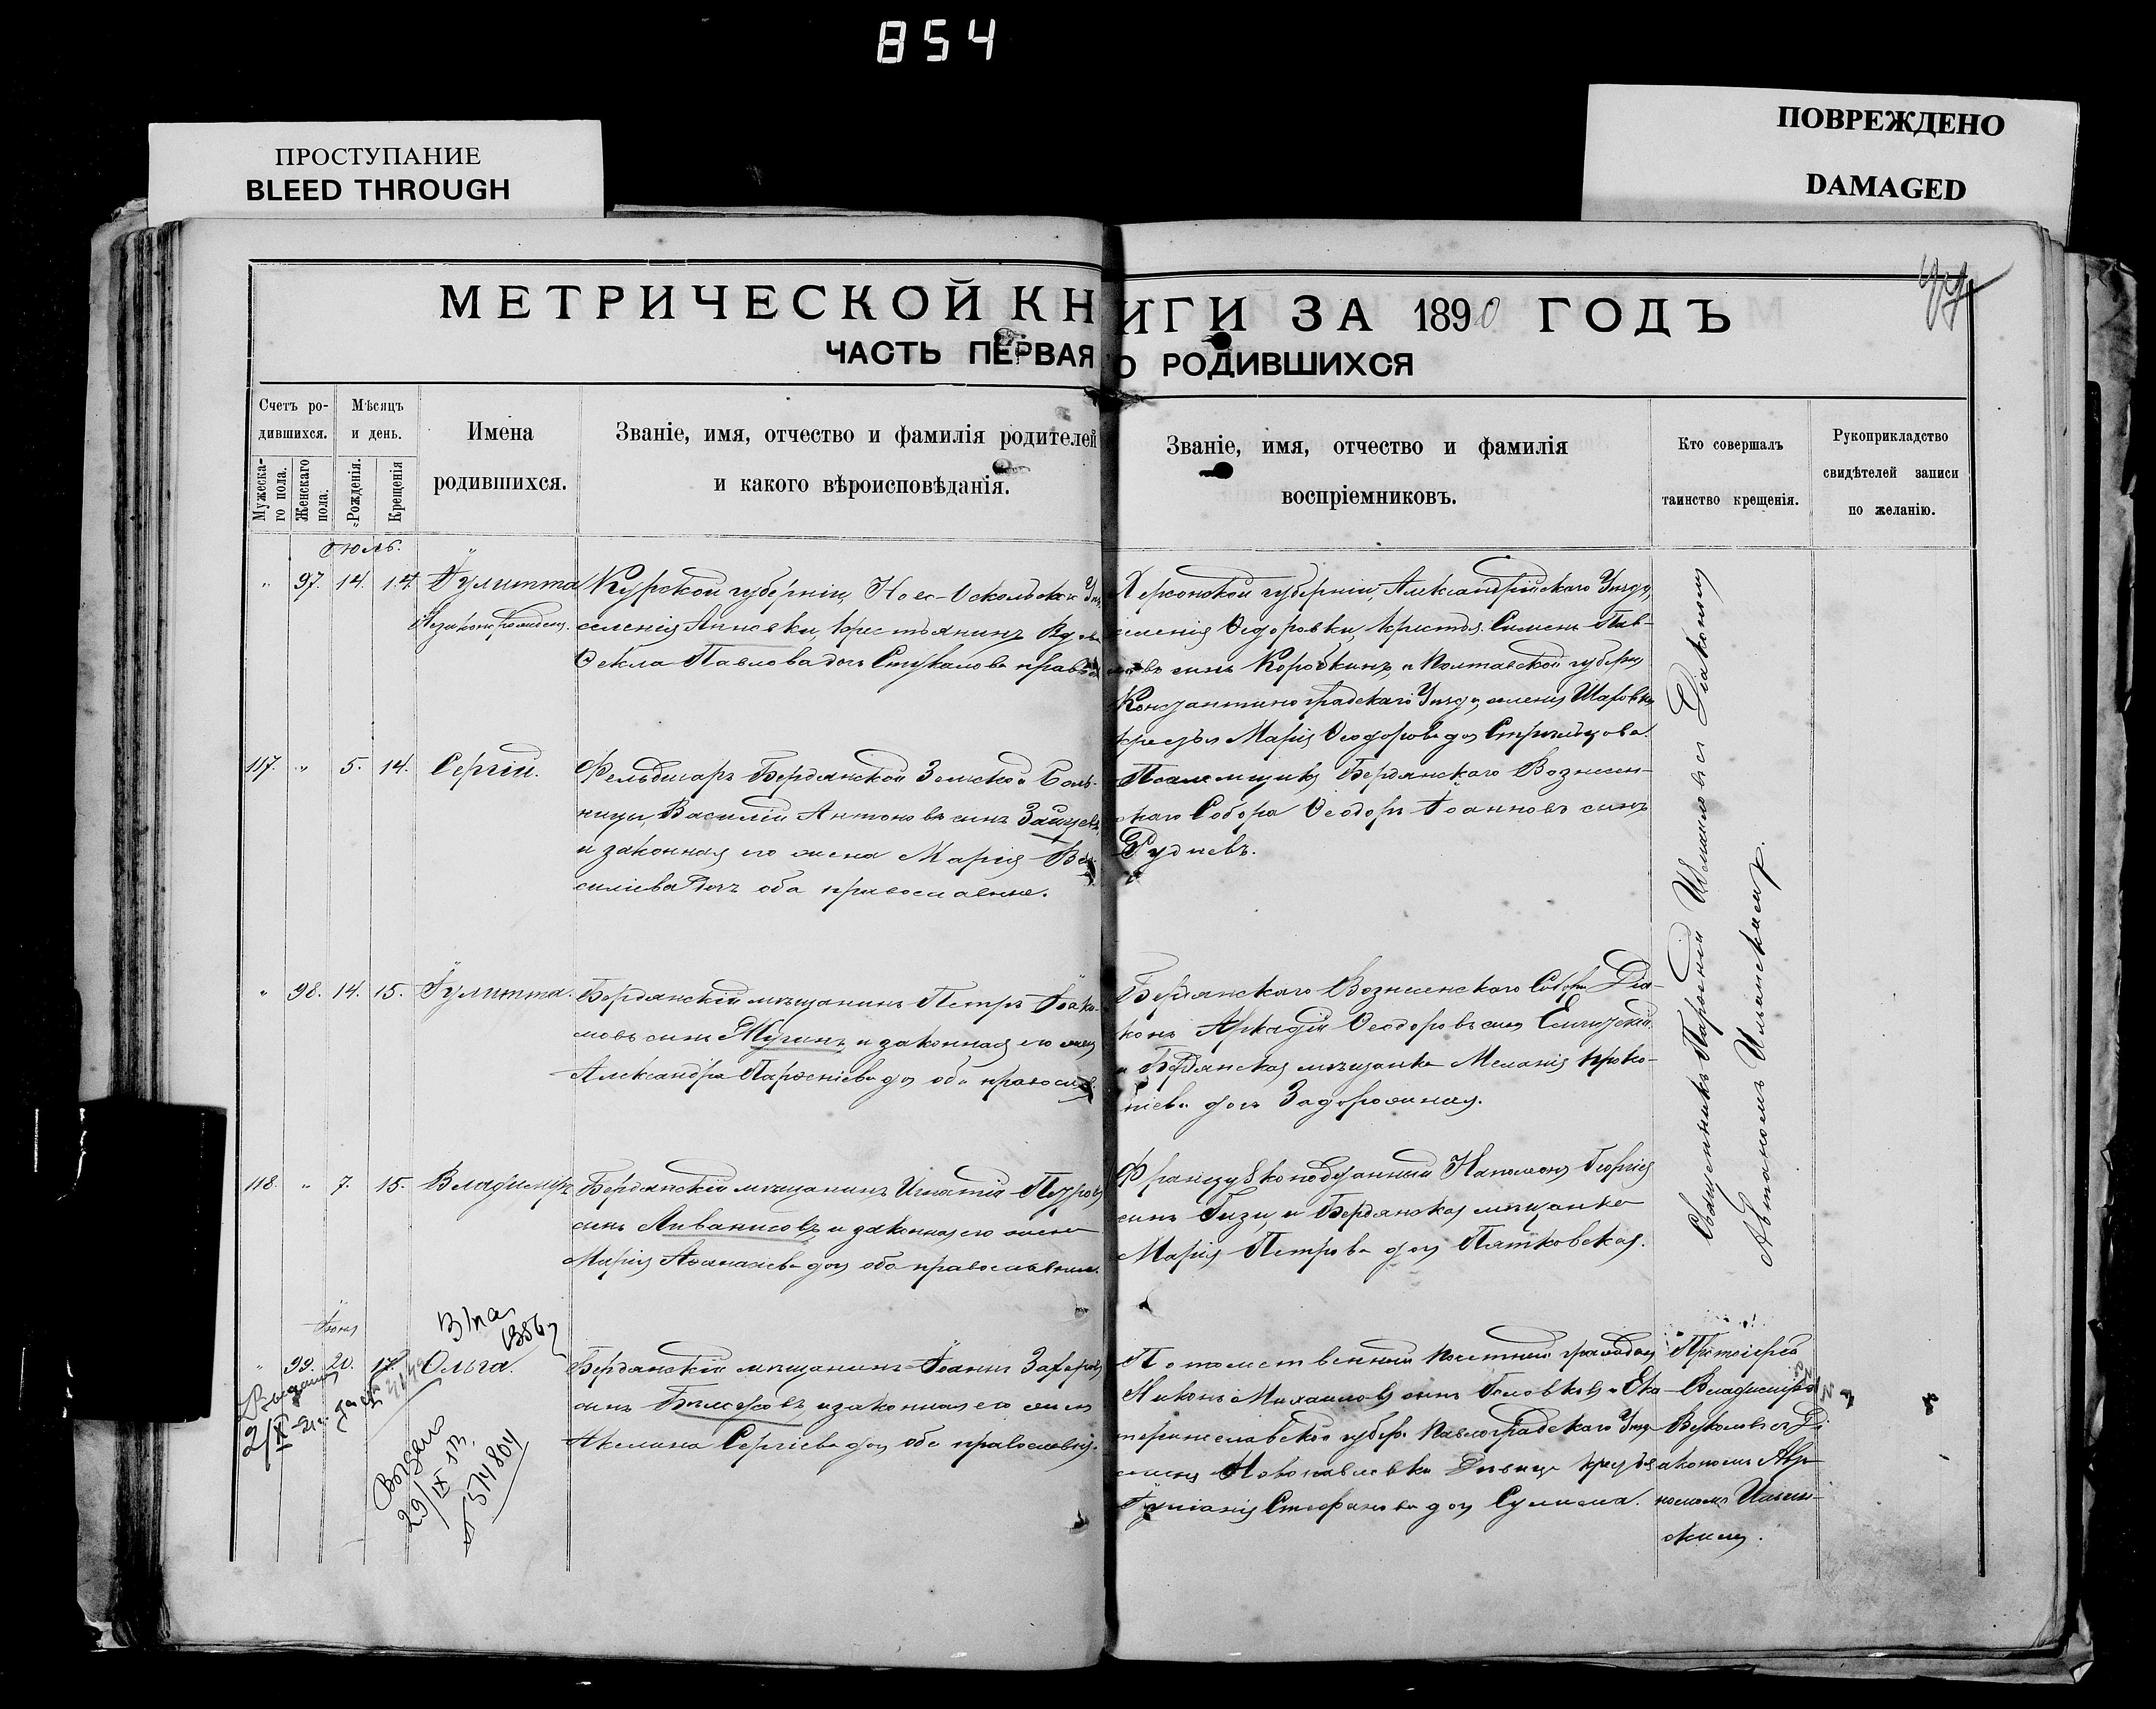 854
ПРОСТУПАНИЕ
BLEED THROUGH
ПОВРЕЖДЕНО
DAMAGED
МЕТРИЧЕСКОЙ КНИГИ ЗА 1890 ГОДЪ
ЧАСТЬ ПЕРВАЯ О РОДИВШИХСЯ
Счетъ родившихся.
Мужескаго пола.
Женскаго пола.
Мѣсяцъ и день.
Рожденія.
Крещенія
Имена
родившихся.
Званіе, имя, отчество и фамилія родителей
и какого вѣроисповѣданія.
Званіе, имя, отчество и фамилія
воспріемниковъ.
Кто совершалъ
таинство крещенія.
Рукоприкладство
свидѣтелей записи
по желанію.
Іюль.
" 97. 14. 14. Іулитта
Курской губерніи, Ново-Оскольска
селенія Анновки, крестьянинъ
Ѳекла Павлова доч Стукалова
Херсонской губерніи, Александрійскаго Уѣзда,
селенія Ѳедоровки, крестья. Симеонъ Пав-
ловъ сынъ Коробкинъ, и Полтавской губерн
Константиноградскаго Уѣзда, селенія
Марія Ѳеодорова доч
117. " 5. 14. Сергій.
Фельдшаръ Бердянской Земской Боль-
ницы, Василій Антоновъ сынъ Зайцевъ,
и законная его жена Марія Ва-
силіева доч оба православные.
Псаломщикъ Бердянскаго Вознесен-
скаго Собора Ѳеодоръ Іоанновъ сынъ
Рудневъ.
" 98. 14. 15. Іулитта.
Бердянскій мѣщанинъ Петръ Іако-
мовъ сынъ и законная его жена
Александра Парѳеніева доч оба правосла
Бердянскаго Вознесенскаго Собора Діа-
конъ Аркадій Ѳеодоровъ сынъ
и Бердянская мѣщанка Меланія Проко-
піева доч Задорожная.
118. " 7. 15. Владиміръ
Бердянскій мѣщанинъ Игнатій Петровъ
сынъ Аиванисовъ, и законная его жена
Марія Аѳанасіева доч оба православные.
Французскоподданный Наполеонъ Георгіев
сынъ Гизи, и Бердянская мѣщанка
Марія Петрова доч Пятковская.
Священникъ Парѳеній съ Діакономъ
Автономомъ Ильинскимъ.
Іюня
" 99. 20. 17. Ольга.
Бердянскій мѣщанинъ Іоаннъ Захаров
сынъ и законная его жена
Акелина Сергіева доч оба православные.
Потомственный почетный гражданин
Никонъ Михаиловъ сынъ Головковъ и Ека-
теринославской губер. Павлоградскаго Уѣзда
селенія Новопавловки Дѣвица
Іуліанія Стефанова доч Сулима.
Протоіерей
Владиміръ
съ Ді
акономъ Авто-
номомъ Ильин-
скимъ.
Выдано
29/IX
574804